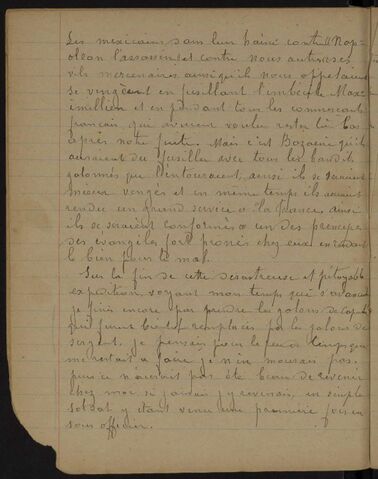 Les mexicains dans leur haine contre Napo-
léon l'assassin et contre nous autres, ses
vils mercenaires ainsi qu'ils nous appelaient
se vengèrent en fusillant l'imbécile Maxi-
milien et en pendant tous les commerçants
français qui avaient voulu rester là bas
après notre fuite. Mais c'est Bazaine qu'ils
auraient du fusiller avec tous les bandits
galonnés qui l'entouraient, ainsi ils se seraient
mieux vengés et en même temps ils auraient
rendu un grand service a la france, ainsi
ils se seraient conformés a un des principes
des evangiles fort pronés chez eux en rendant
le bien pour le mal.
Sur la fin de cette desastreuse et pitoyable
expédition, voyant mon temps qui s'avançait
je finis encore par prendre les galons de caporal
qui furent bientôt remplacés par les galons de
sergent, je pensais pour le peu de temps qui
me restait a faire je n'en mourrais pas,
puis ce n'aurait pas été beau de revenir
chez moi si jamais j'y revenais, en simple
soldat y étant venu une première fois en
sous officier.